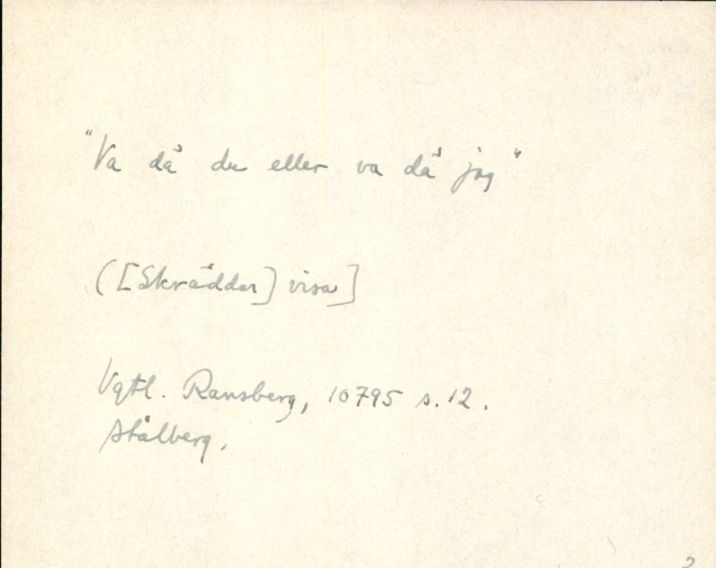 "Va då du eller va då jag"
([Skräddar] visa]
Vgtl. Ransberg, 10795 s. 12.
Stålberg.
2